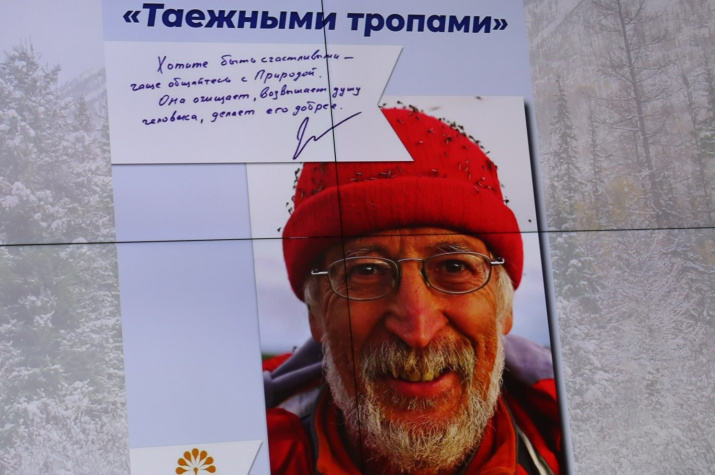 «Таежными тропами»
Хотите быть счастливыми –
чаще общайтесь с Природой.
Она очищает, возвышает душу
человека, делает его добрее.